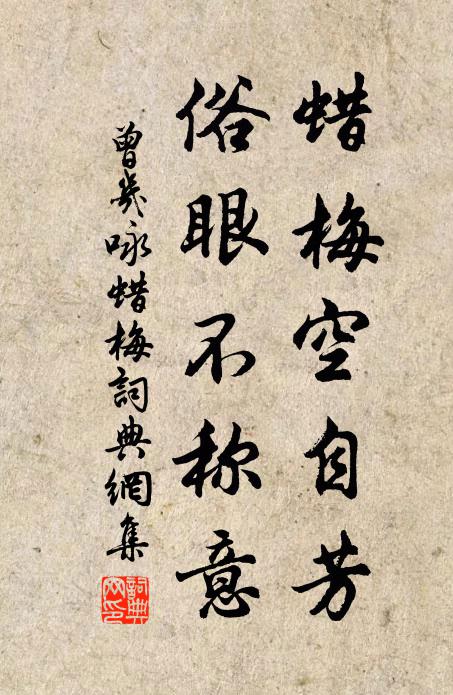 蜡梅空自芳
俗眼不称意
曾幾咏蜡梅詞典網集
詞典網印